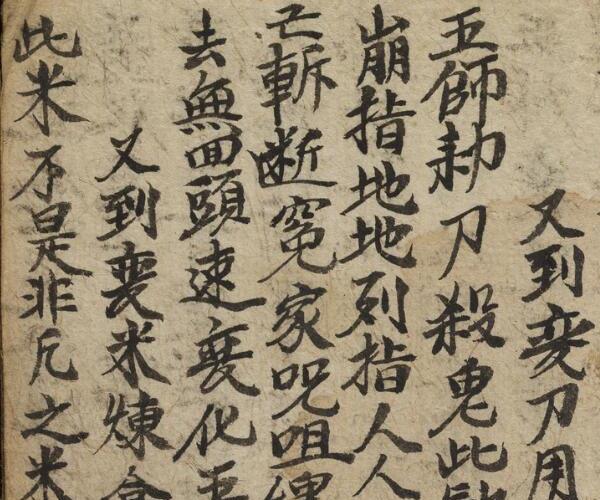 又到变刀用
五師勅刀殺鬼此
崩指地地列指人人
亡斬断冤家呪咀
去無回頭速变化
又到变米煉
此米不是非凡之米